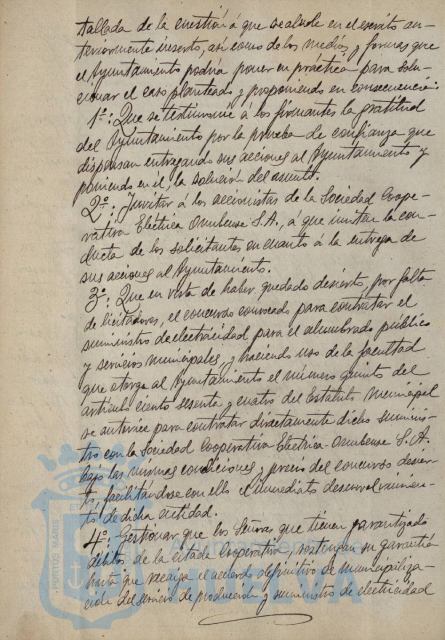 tallada de la cuestión á que se alude en el escrito an-
teriormente inserto, así como de los medios y formas que
el Ayuntamiento podría poner en práctica para solu-
cionar el caso planteado y proponiendo en consecuencia:
1º: Que se testimonie á los firmantes la gratitud
del Ayuntamiento por la prueba de confianza que
dispensan entregando sus acciones al Ayuntamiento y
poniendo en él, la solución del asunto.
2º: Invitar á los accionistas de la Sociedad Coope-
rativa Eléctrica Onubense S.A., á que imiten la con-
ducta de los solicitantes en cuanto á la entrega de
sus acciones al Ayuntamiento.
3º: Que en vista de haber quedado desierto, por falta
de licitadores, el concurso convocado para contratar el
suministro de electricidad para el alumbrado público
y servicios municipales, y haciendo uso de la facultad
que otorga al Ayuntamiento el número quinto del
artículo ciento sesenta y cuatro del Estatuto Municipal
se autorice para contratar directamente dicho suminis-
tro con la Sociedad Cooperativa Eléctrica Onubense S.A.
bajo las mismas condiciones y precio del concurso desier-
to, facilitándose con ello el inmediato desenvolvimien-
to de dicha entidad.
4º: Gestionar que los Señores que tienen garantizado
débitos de la citada Cooperativa, sostengan su garantía
hasta que recaiga el acuerdo definitivo de municipaliza-
ción del servicio de producción y suministro de electricidad
PORTUS MARIS